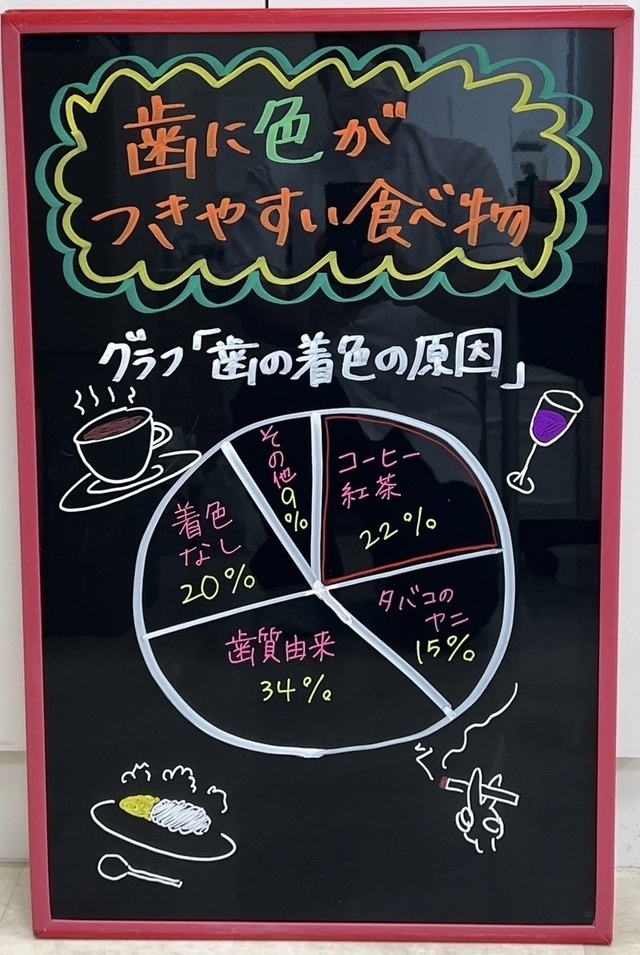 歯に色が
つきやすい食べ物
グラフ「歯の着色の原因」
コーヒー
紅茶
22%
タバコの
ヤニ
15%
歯質由来
34%
着色
なし
20%
その他
9
%